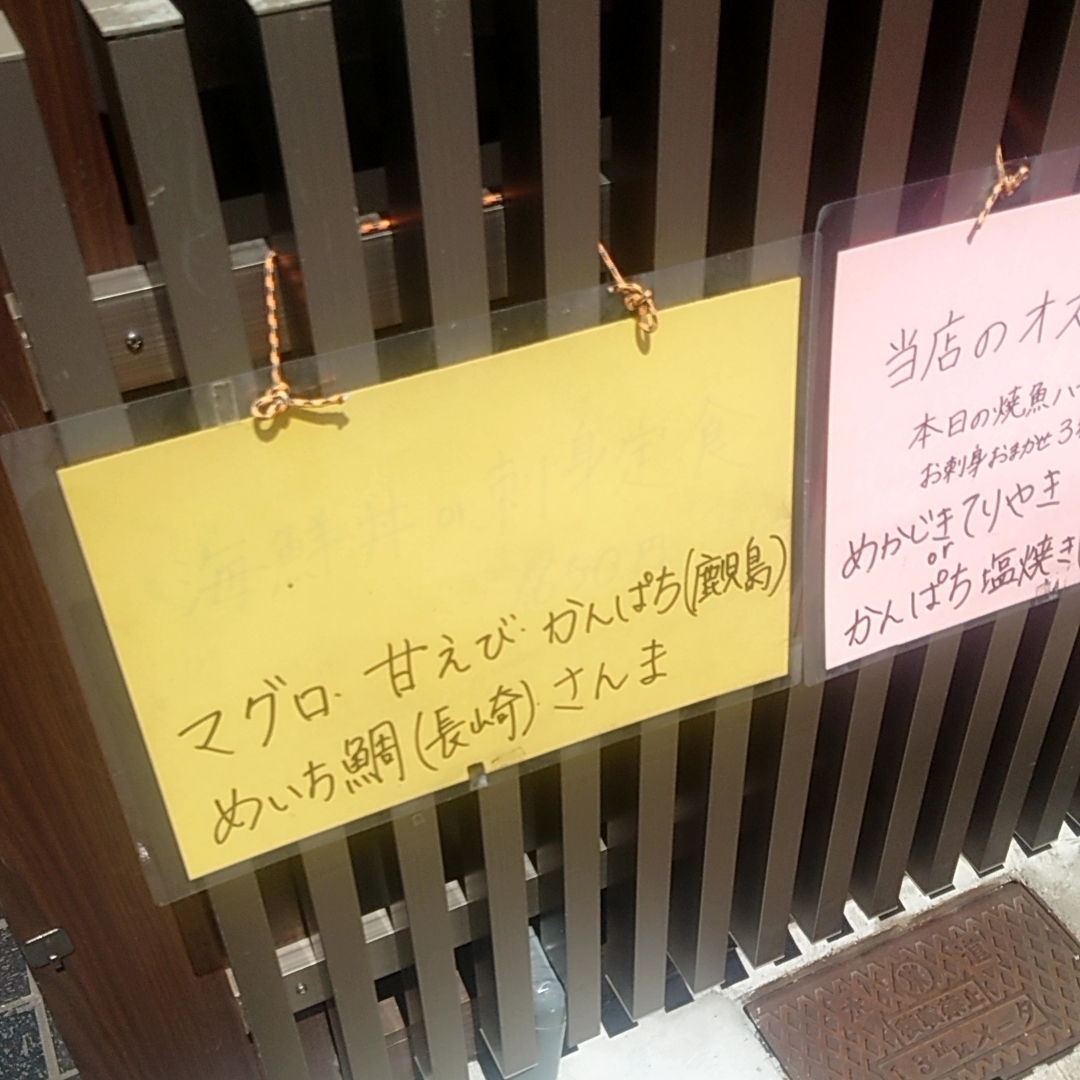 海鮮丼 or 刺身定食
マグロ・甘えび・かんぱち(鹿児島)
めいち鯛(長崎)・さんま
当店のオス
本日の焼魚ハ
お刺身おまかせ3
めかじきてりやき
or
かんぱち塩焼き
メータ